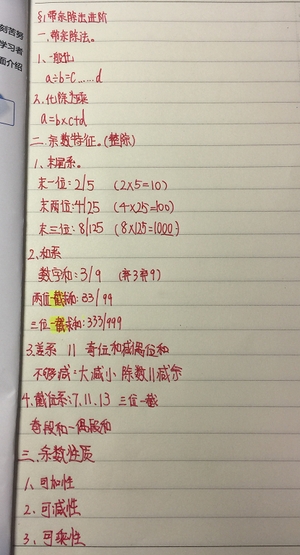 刻苦努
学习者
面介绍
§1 带余除法进阶
一、带余除法。
1、一般化
a÷b=c……d
2、化除为乘
a=b×c+d
二、余数特征。(整除)
1、末尾系。
末一位:2/5 (2×5=10)
末两位:4/25 (4×25=100)
末三位:8/125 (8×125=1000)
2、和系
数字和:3/9 (弃3弃9)
两位一截求和:33/99
三位一截求和:333/999
3.差系 11 奇位和减偶位和
不够减:大减小 除数11减余
4.截位系:7.11.13 三位一截
奇段和-偶段和
三、余数性质
1、可加性
2、可减性
3、可乘性